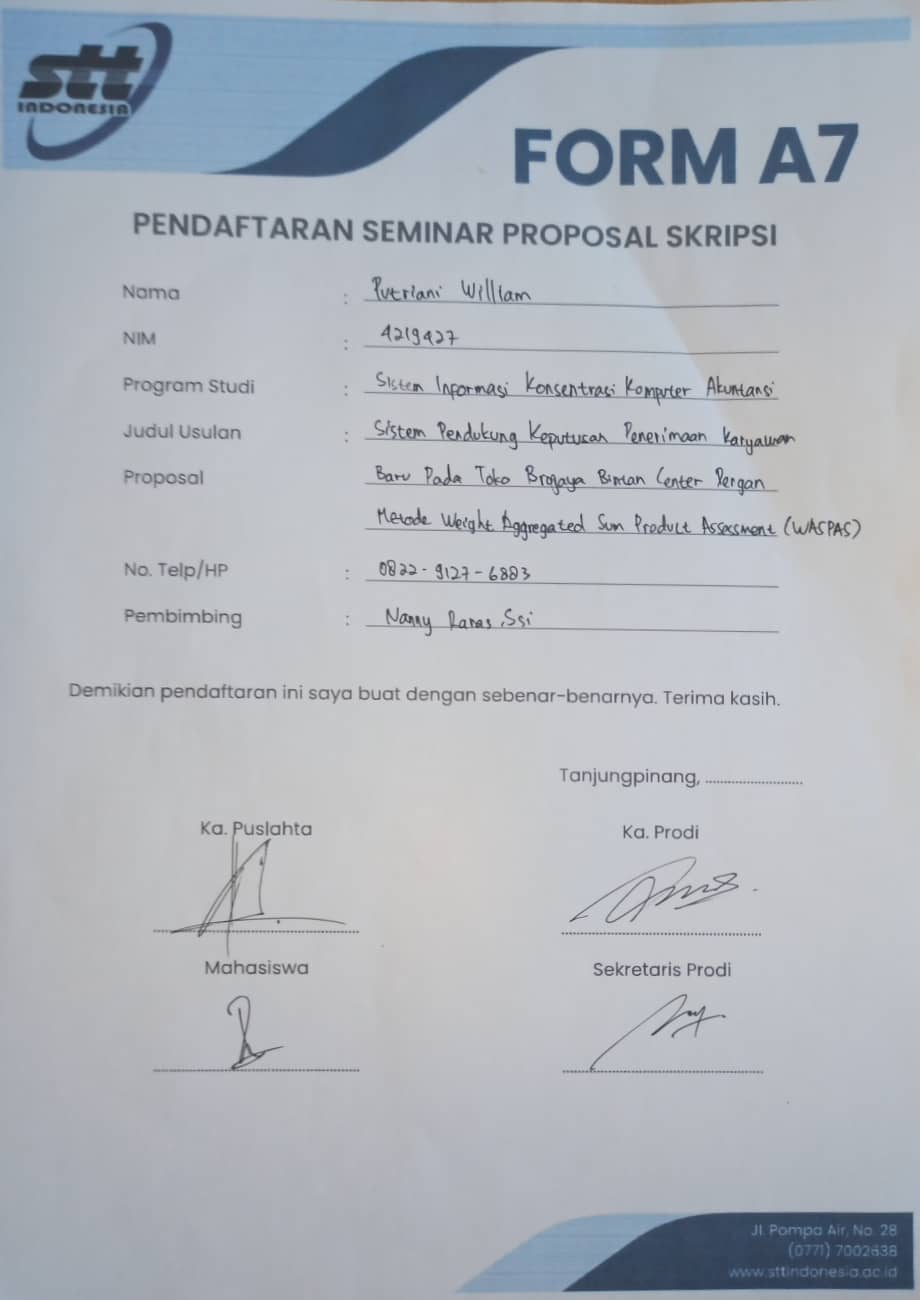 stt
INDONESIA
FORM A7
PENDAFTARAN SEMINAR PROPOSAL SKRIPSI
Nama : Putriani William
NIM : 4219427
Program Studi : Sistem Informasi Konsentrasi Komputer Akuntansi
Judul Usulan : Sistem Pendukung Keputusan Penerimaan Karyawan
Proposal Baru Pada Toko Brojaya Bintan Center Dengan
Metode Weight Aggregated Sum Product Assessment (WASPAS)
No. Telp/HP : 0822-9127-6883
Pembimbing : Nanny Ssi
Demikian pendaftaran ini saya buat dengan sebenar-benarnya. Terima kasih.
Tanjungpinang, ..........................
Ka. Puslahta Ka. Prodi
Mahasiswa Sekretaris Prodi
Jl. Pompa Air, No. 28
(0771) 7002638
www.sttindonesia.ac.id